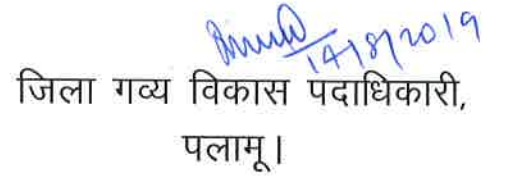 14/8/2019
जिला गव्य विकास पदाधिकारी,
पलामू।